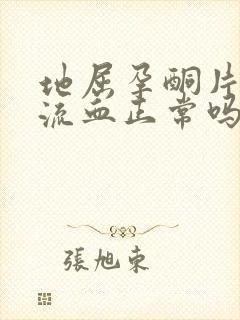 地屈孕酮片
流血正常吗
張旭東